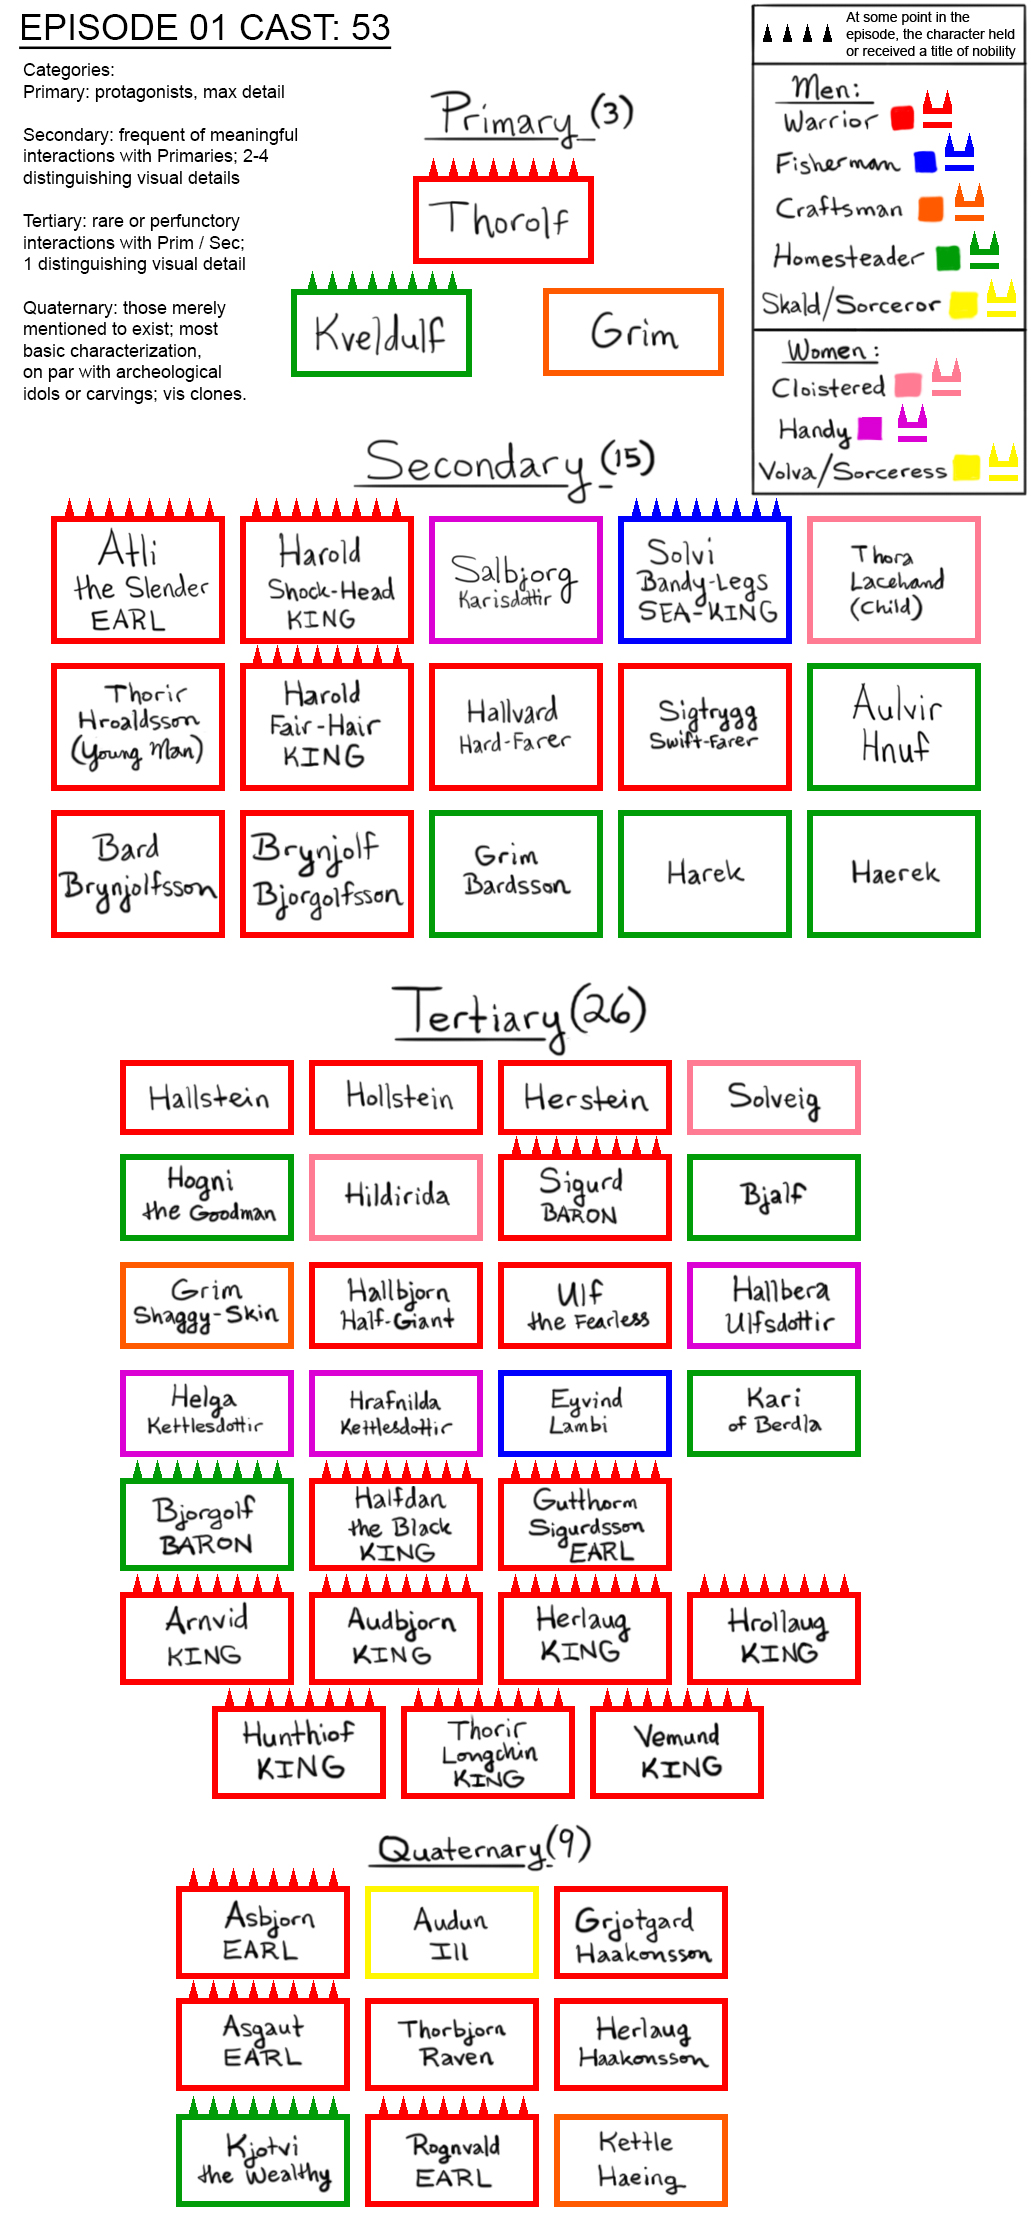 EPISODE 01 CAST: 53
Categories:
Primary: protagonists, max detail
Secondary: frequent of meaningful
interactions with Primaries; 2-4
distinguishing visual details
Tertiary: rare or perfunctory
interactions with Prim / Sec;
1 distinguishing visual detail
Quaternary: those merely
mentioned to exist; most
basic characterization,
on par with archeological
idols or carvings; vis clones.
At some point in the
episode, the character held
or received a title of nobility
Men:
Warrior
Fisherman
Craftsman
Homesteader
Skald/Sorceror
Women:
Cloistered
Handy
Volva/Sorceress
Primary (3)
Thorolf
Kveldulf
Grim
Secondary (15)
Atli
the Slender
EARL
Harold
Shock-Head
KING
Salbjorg
Karisdottir
Solvi
Bandy-Legs
SEA-KING
Thora
Lacehand
(Child)
Thorir
Hroaldsson
(Young Man)
Harold
Fair-Hair
KING
Hallvard
Hard-Farer
Sigtrygg
Swift-Farer
Aulvir
Hnuf
Bard
Brynjolfsson
Brynjolf
Bjorgolfsson
Grim
Bardsson
Harek
Haerek
Tertiary (26)
Hallstein
Hollstein
Herstein
Solveig
Hogni
the Goodman
Hildirida
Sigurd
BARON
Bjalf
Grim
Shaggy-Skin
Hallbjorn
Half-Giant
Ulf
the Fearless
Hallbera
Ulfsdottir
Helga
Kettlesdottir
Hrafnilda
Kettlesdottir
Eyvind
Lambi
Kari
of Berdla
Bjorgolf
BARON
Halfdan
the Black
KING
Gutthorm
Sigurdsson
EARL
Arnvid
KING
Audbjorn
KING
Herlaug
KING
Hrollaug
KING
Hunthiof
KING
Thorir
Longchin
KING
Vemund
KING
Quaternary (9)
Asbjorn
EARL
Audun
Ill
Grjotgard
Haakonsson
Asgaut
EARL
Thorbjorn
Raven
Herlaug
Haakonsson
Kjotvi
the Wealthy
Rognvald
EARL
Kettle
Haeing